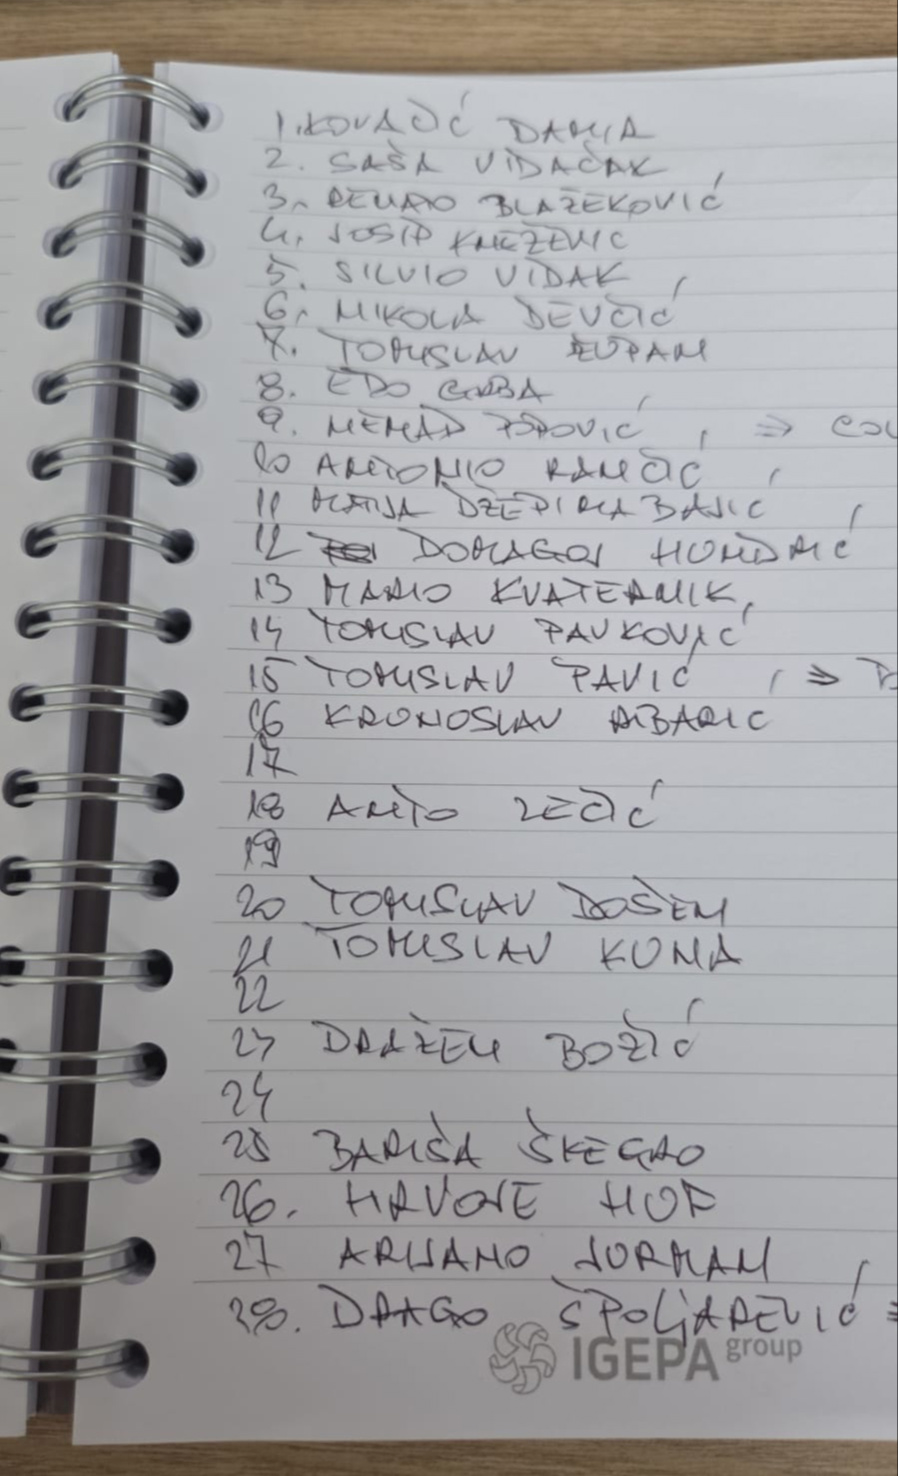 1. KOVAČIĆ DAMIR
2. SAŠA VIDAČAK
3. RENATO BLAŽEKOVIĆ
4. JOSIP KNEŽEVIC
5. SILVIO VIDAK
6. NIKOLA DEVČIĆ
7. TOMISLAV ŽUPAN
8. EDO GRBA
9. NENAD POPOVIĆ, ⇒ COU
10 ANTONIO RANČIĆ
11 MATIJA DŽEPINA BAJIĆ
12 DOMAGOJ HONDRIĆ
13 MARIO KVATERNIK
14 TOMISLAV PAVKOVIĆ
15 TOMISLAV PAVIĆ ⇒
16 KRUNOSLAV RIBARIC
17
18 ANTO ZEČIĆ
19
20 TOMISLAV DOŠEN
21 TOMISLAV KUNA
22
23 DRAŽEN BOŽIĆ
24
25 BARIŠA ŠKEGRO
26. HRVOJE HOF
27 ARIJANO JURMAN
28. DRAGO ŠPOLJAREVIĆ
IGEPA group